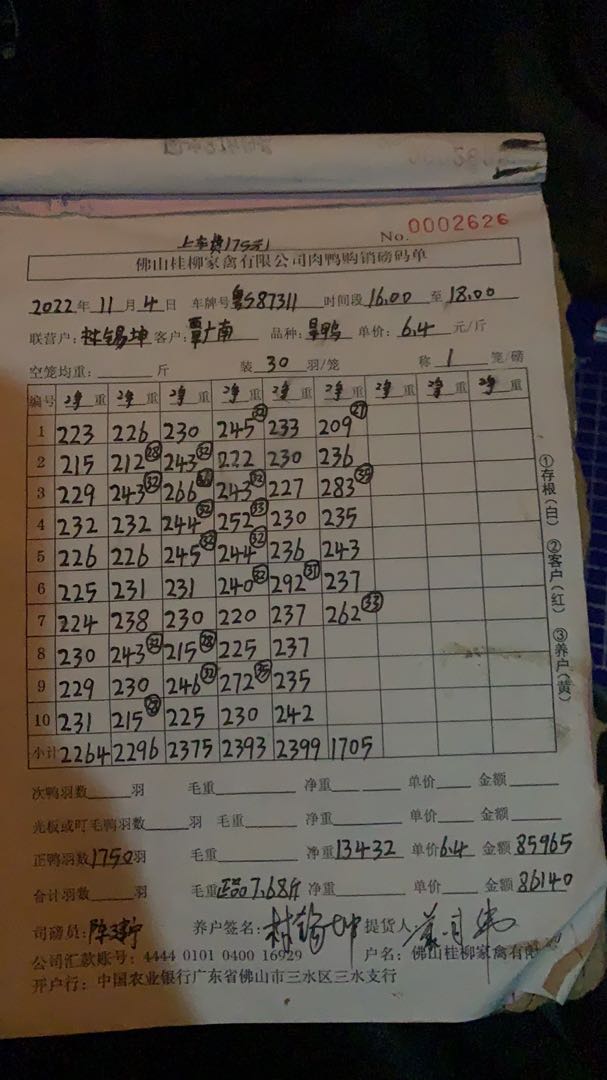 上车费175元
No. 0002626
佛山桂柳家禽有限公司肉鸭购销磅码单
2022年 11月 4日 车牌号粤S87311 时间段16.00至18.00
联营户:林锡坤 客户:覃广南 品种: 单价:6.4元/斤
空笼均重: 斤 装30羽/笼 称1笼/磅
编号 净重 净重 净重 净重 净重 净重 净重 净重 净重
1 223 226 230 245㉜ 233 209㉗
2 215 212㉘ 243㉜ 222 230 236
3 229 243㉜ 266 243㉜ 227 283㉟
4 232 232 244㉜ 252㉝ 230 235
5 226 226 245㉜ 244㉜ 236 243
6 225 231 231 240㉜ 292㊲ 237
7 224 238 230 220 237 262㉝
8 230 243㉜ 215㉘ 225 237
9 229 230 246㉜ 272㉟ 235
10 231 215㉘ 225 230 242
小计 2264 2296 2375 2393 2399 1705
次鸭羽数 羽 毛重 净重 单价 金额
光板或盯毛鸭羽数 羽 毛重 净重 单价 金额
正鸭羽数1750羽 毛重 净重13432 单价6.4 金额85965
合计羽数 羽 毛重正品7.68斤 净重 单价 金额86140
司磅员: 养户签名:林锡坤 提货人
公司汇款账号: 4444 0101 0400 16929 户名: 佛山桂柳家禽有限
开户行: 中国农业银行广东省佛山市三水区三水支行
①存根(白) ②客户(红) ③养户(黄)